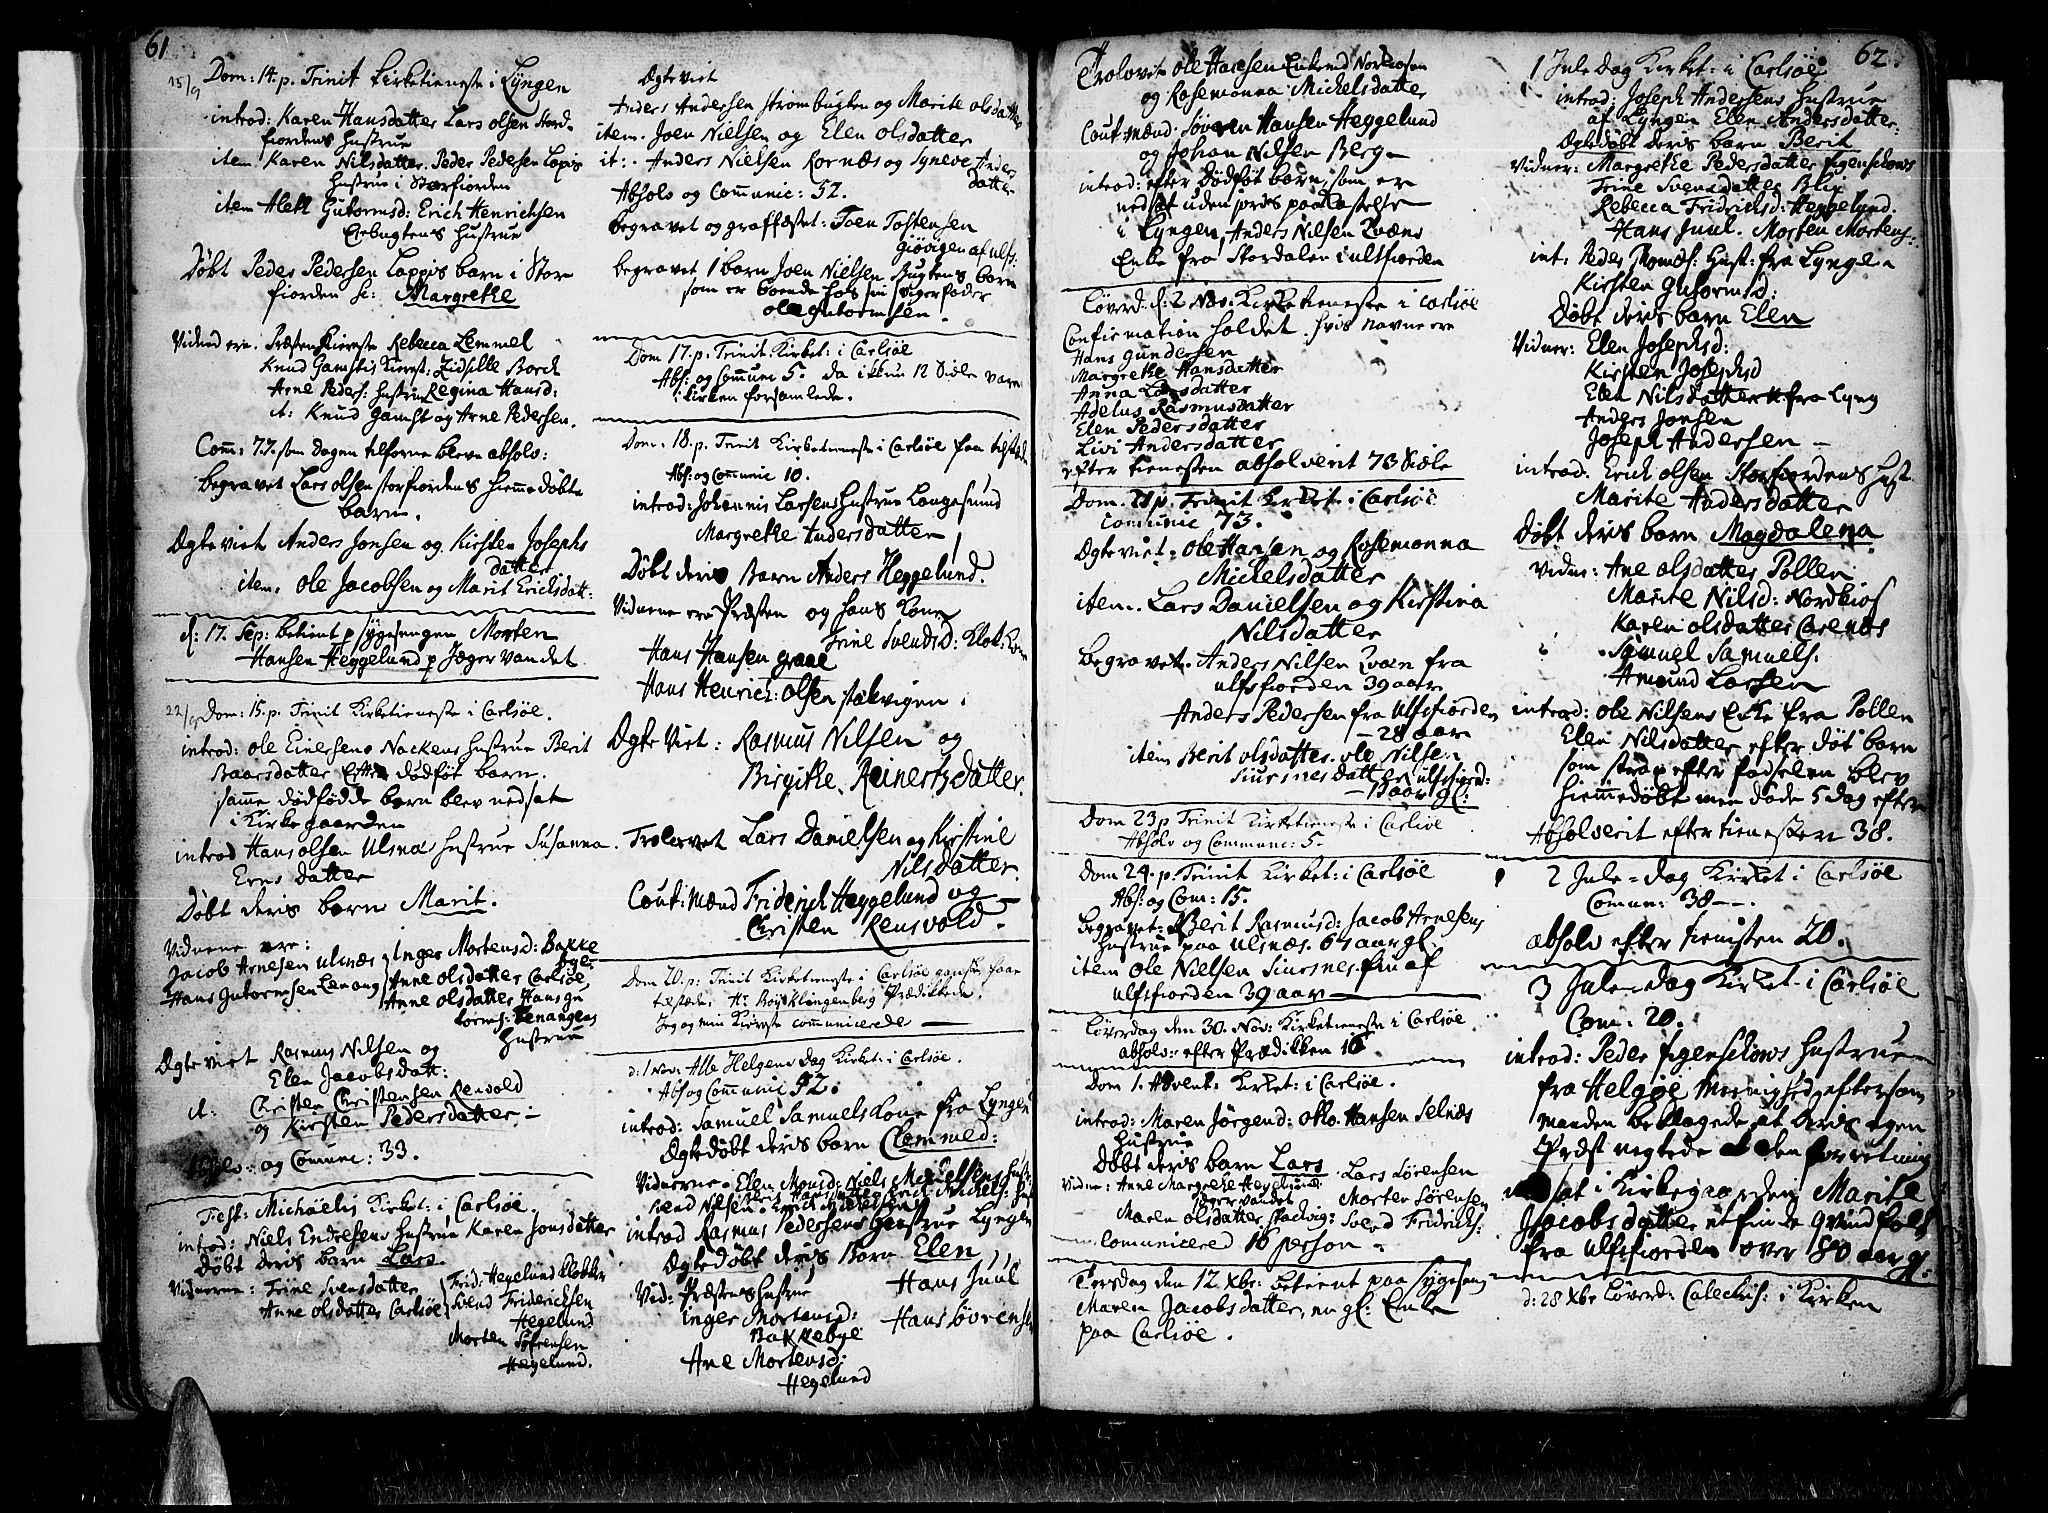 61
15/9
Dom: 14. p. Trinit Kirketieneste i Lyngen
introd: Karen Hansdatter Lars Olsen Stord-
fiordens Hustrue
item Karen Nilsdatter. Peder Pedersen Lapis
Hustrue i Storfiorden
item Aleth Gutormsd: Erich Henrichsen
Hustrue
Døbt Peder Pedersen Lappis barn i Stor
fiorden sc: Margrethe
Vidner ere. Præstens Kiereste Rebecca Lemmel
Knud Gamsts Kierest: Zidsille Borch
Arne Peders: Hustrue Regina Hansd:
it: Knud Gamst og Arne Pedersen.
Com: 77. som dagen tilforne bleve absolv:
begravet Lars Olsen Storfiordens hiemmedøbte
barn.
Ægteviet Anders Jonsen og Kirsten Josephs
datter
item. Ole Jacobsen og Marit Erichsdatt:
d: 17. Sep: betient p Sygesengen Morten
Hansen Heggelund p Jægervandet
22/9 Dom: 15. p. Trinit Kirketieneste i Carlsøe.
introd: Ole Einersens Nackens Hustrue Berit
Baarsdatter Efter dødføt barn.
samme dødfødde barn blev nedsat
i Kirkegaarden
introd Hans Olsen Ulsnæs Hustrue Susanna
Erns datter
Døbt deris barn Marit.
Vidnerne ere:
Jacob Arnesen Ulsnæs Inger Mortensd: Bakke
bye
Hans Gutormsen Lenang Anne Olsdatter Carlsøe
Anne Olsdatter Hans Gu
torms: Lenangens
Hustrue
Ægteviet Rasmus Nilsen og
Elen Jacobsdatt:
it: Christen Christensen Rensvold
og Kirsten Pedersdatter. -
Absolv: og Comunic: 33.
Fest: Michaëlis Kirket: i Carlsøe
introd: Niels Endresens Hustrue Karen Jonsdatter
Døbt deris barn Lars.
Vidnerne: Trine Svensdatter Frid: Hegelund Klokker
Anne Olsdatter Carlsøe Svend Fridericksen
Hegelund
Morten Sørensen
Hegelund.
Ægteviet
Anders Andersen Strømbugten og Marite Olsdatter
item. Joen Nielsen og Elen Olsdatter
it: Anders Nielsen Kornæs og Synneve Anders
datter
Absolv og Communic: 52.
begravet og graffæstet: Joen Tostensen
Giøvigen af Ulfs:
begravet 1 barn Joen Nielsen Bugtens barn
som er boende hos sin Svigerfader
Ole Gutormsen.
Dom 17. p. Trinit. Kirket: i Carlsøe
Abs: og Commun 5. da ikkun 12 Siæle vare
i Kirken forsamlede.
Dom. 18. p. Trinit Kirketieneste i Carlsøe
Abs: og Communic 10.
introd: Johannis Larsens Hustrue Langesund
Margrethe Andersdatter
Døbt deris Barn Anders Heggelund.
Vidnerne ere Præsten og hans Kone
Trine Svendsd: Klok: Kone
Hans Hansen graae
Hans Henrich: Olsen Stakvigen.
Ægte Viet: Rasmus Nilsen og
Birgithe Reinertsdatter.
Trolovet Lars Danielsen og Kirstine
Nilsdatter.
Caut: Mænd Friderich Heggelund og
Christen Rensvold.
Dom 20. p: Trinit Kirketieneste i Carlsøe ganske faae
tilstæde. Hr Boye Klingenberg Prædikkede.
Jeg og min Kiereste communicerede
d: 1 Nov: Alle Helgens dag Kirket: i Carlsøe.
Abs og Communic 52.
introd: Samuel Samuels Kone fra Lyngen
Ægtedøbt deris barn Clommed:
Vidnerne. Elen Monsd: Niels
introd Rasmus Pedersens Hustrue Lyngen
Ægtedøbt deris Barn Elen
Vid: Præstens Hustrue Hans Juul
Inger Mortensd: Hans Sørens:
Bakkebye
Ane Mortensd:
Hegelund
62.
Trolovet Ole Hansen
og Rosemonna Michelsdatter
Caut: Mænd: Søvren Hansen Heggelund
og Johan Nilsen Berg-
introd: efter dødføt barn, som er
nedsat uden jords paakastelse
i Lyngen, Anders Nilsen Qvæns
Enke fra Stordalen i Ulfsfiorden
Løverd: d: 2 Nov: Kirketieneste i Carlsøe
Confirmation holdet. hvis Navne ere
Hans Gundersen
Margrethe Hansdatter
Anna Larsdatter
Adelus Rasmusdatter
Elen Pedersdatter
Livi Andersdatter
Efter tienesten absolverit 73 Siæle
Dom. 21 p. Trinit Kirket: i Carlsøe
Comunic 73.
Ægteviet: Ole Hansen og Rosemonna
Michelsdatter
item. Lars Danielsen og Kirstina
Nilsdatter
begravet. Anders Nilsen Qvæn fra
Ulfsfiorden 39 aar
Anders Pedersen fra Ulfsfiorden
- 28 aar
item Berit Olsdatter. Ole Nilsen
Siursnes datter Ulfsfiord:
Dom 23 p Trinit Kirketieneste i Carlsøe
Absolv og Commun: 5.
Dom 24. p. Trinit Kirket: i Carlsøe
Abs: og Com: 15.
begravet: Berit Rasmusd: Jacob Arnesens
Hustrue paa Ulsnæs. 61 aar gl.
item Ole Nielsen Siursnes. fin af
Ulfsfiorden 39 aar
Løverdag den 30. Nov: Kirketieneste i Carlsøe
absolv: efter Prædikken 16
Dom 1. Advent: Kirket: i Carlsøe.
introd: Maren Jørgensd: Otto Hansen Selnæs
Hustrue
Døbt deris barn Lars
Vidne: Anne Margrethe Hegelund Lars Sørensen
Jægervandet Morten Sørensen
Maren Olsdatter Stachvig: Svend Fridrichs:
Comunicered 16 person -
Torsdag den 12 Xbr: betient paa Sygeseng
Maren Jacobsdatter, en gl: Enke
paa Carlsøe.
1 Jule Dag Kirket: i Carlsøe
introd: Joseph Andersens Hustrue
af Lyngen Elen Andersdatter:
Ægtedøbt deris barn Berit
Vidner: Margrethe Pedersdatter Figenschows
Trine Svensdatter Blix
Rebecca Fridrichsd: Heggelund.
Hans Juul. Morten Mortens:
int: Peder Hust: fra Lyngen
Kirsten Gutormsd:
Døbt deris barn Elen
Vidner: Elen Josephsd:
Kirsten Josephsd
Elen Nilsdatter fra Lyng
Anders Jonsen
Joseph Andersen -
introd. Erich Olsen Storfiordens Hust
Marite Andersdatter
Døbt deris barn Magdalena
Vidner: Ane Olsdatter Pollen
Marite Nilsd: Nordkios
Karen Olsdatter Carenæs
Samuel Samuels.
Amund Larsen
introd: Ole Nilsens Enke fra Pollen
Elen Nilsdatter efter døt barn
som strax efter fødselen blev
hiemmedøbt men døde 5 dag efter
Absolverit efter tienesten 38.
2 Jule-dag Kirket i Carlsøe
Comun: 38 --.
absolv efter tienisten 20.
3 Jule-dag Kirket i Carlsøe
Com: 20.
introd: Peder Figenschows Hustrue
fra Helgøe Menighed, eftersom
manden beklagede at deris egen
Præst negtede den forretning
nedsat i Kirkegaarden Marite
Jacobsdatter et finde Qvindfolk
fra Ulfsfiorden over 80 aar gl.
d: 28 Xbr Løverd: Catechis: i Kirken